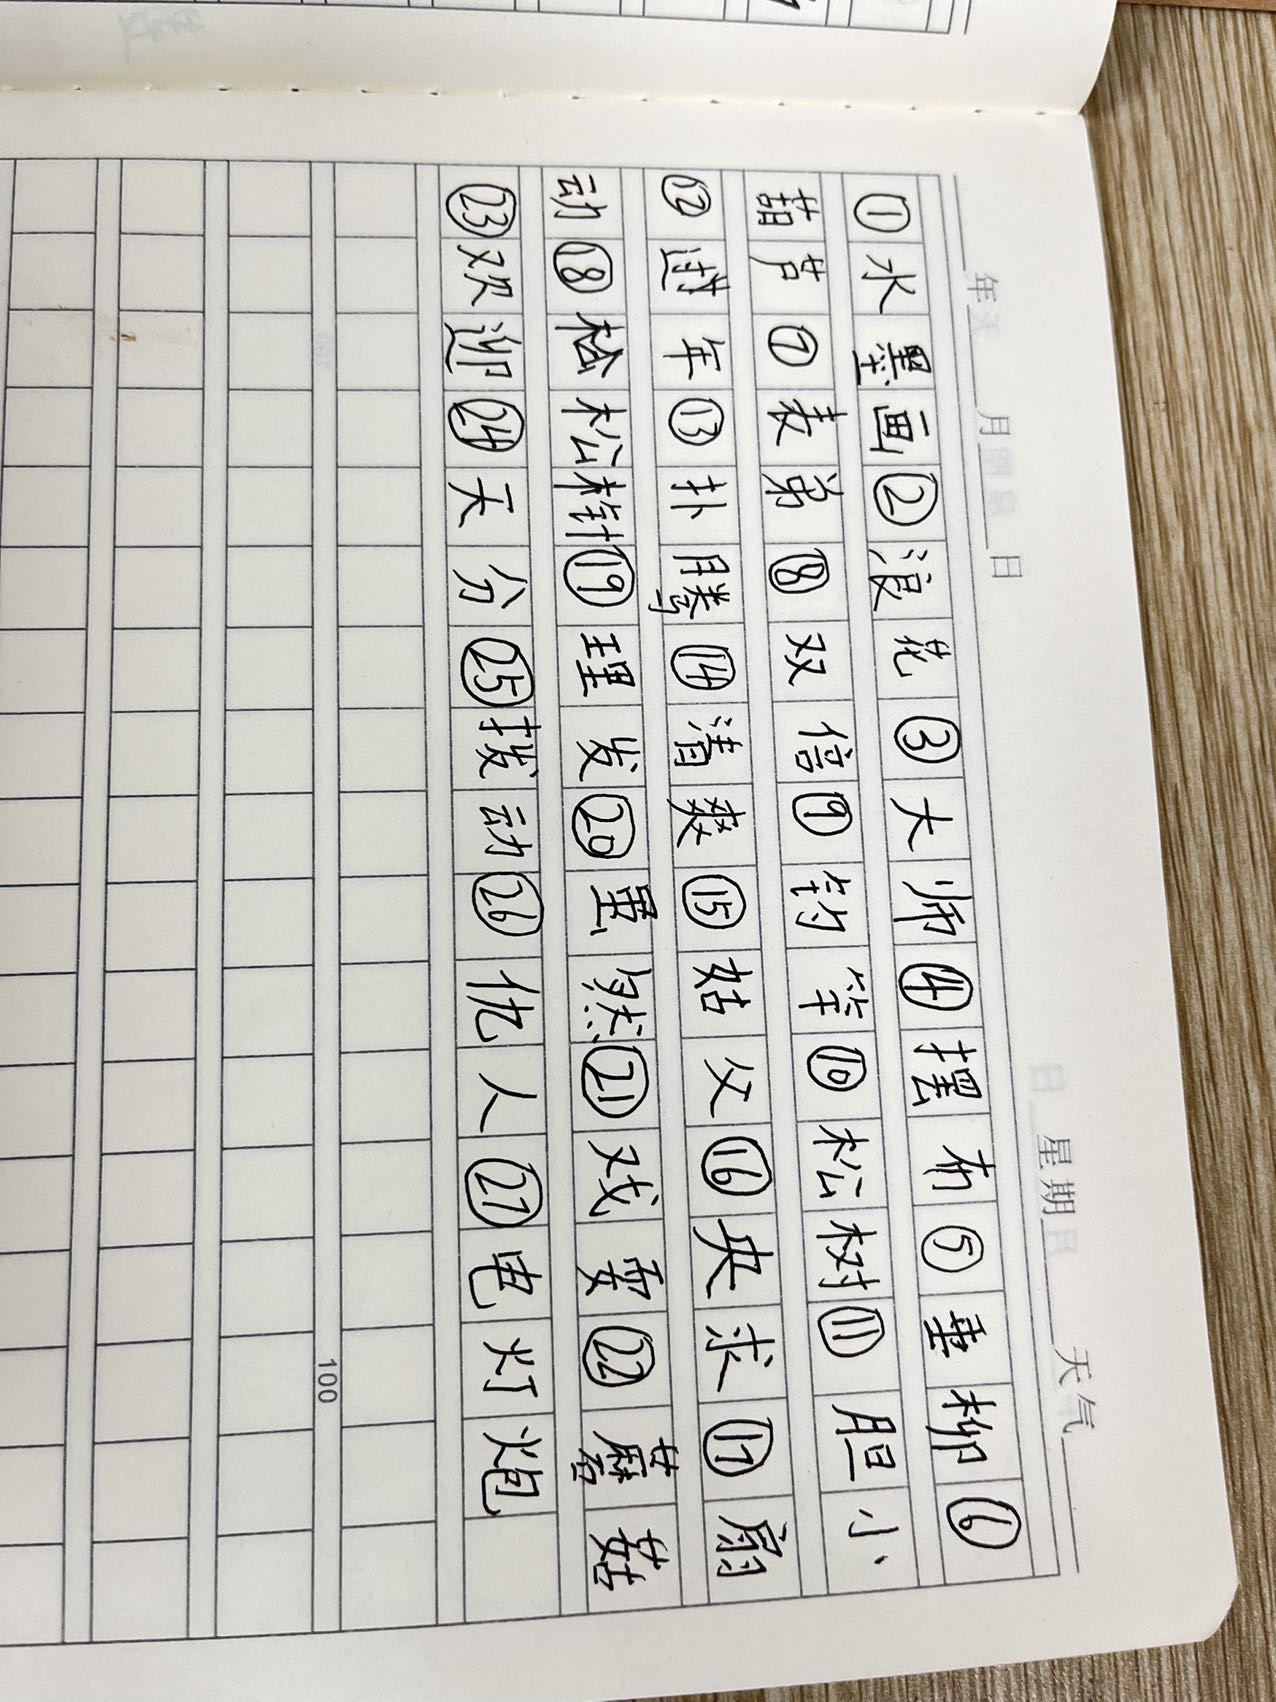 年 月 日 星期 天气
①水墨画②浪花③大师④摆布⑤垂柳⑥
葫芦⑦表弟⑧双倍⑨钓竿⑩松树⑪胆小
⑫过年⑬扑腾⑭清爽⑮姑父⑯央求⑰扇
动⑱松针⑲理发⑳虽然㉑戏耍㉒蘑菇
㉓欢迎㉔天分㉕拨动㉖仇人㉗电灯炮
100